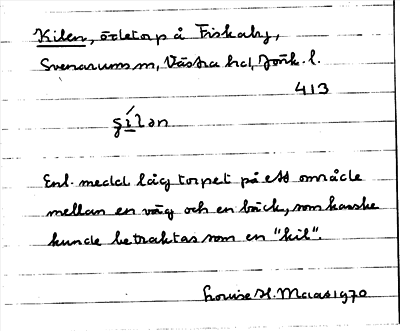 Kilen, ödetorp å Fiskaby,
Svenarums sn, Västra hd, Jönk. l.
413
Enl. medd låg torpet på ett område
mellan en väg och en bäck, som kanske
kunde betraktas som en "kil".
Louise H. Maas 1970